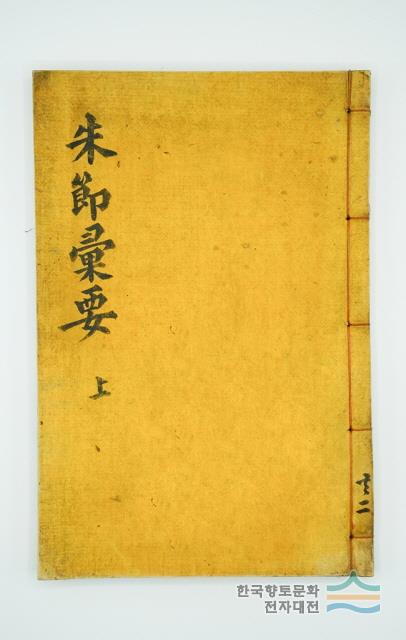 朱節彙要
上
共二
한국향토문화
전자대전